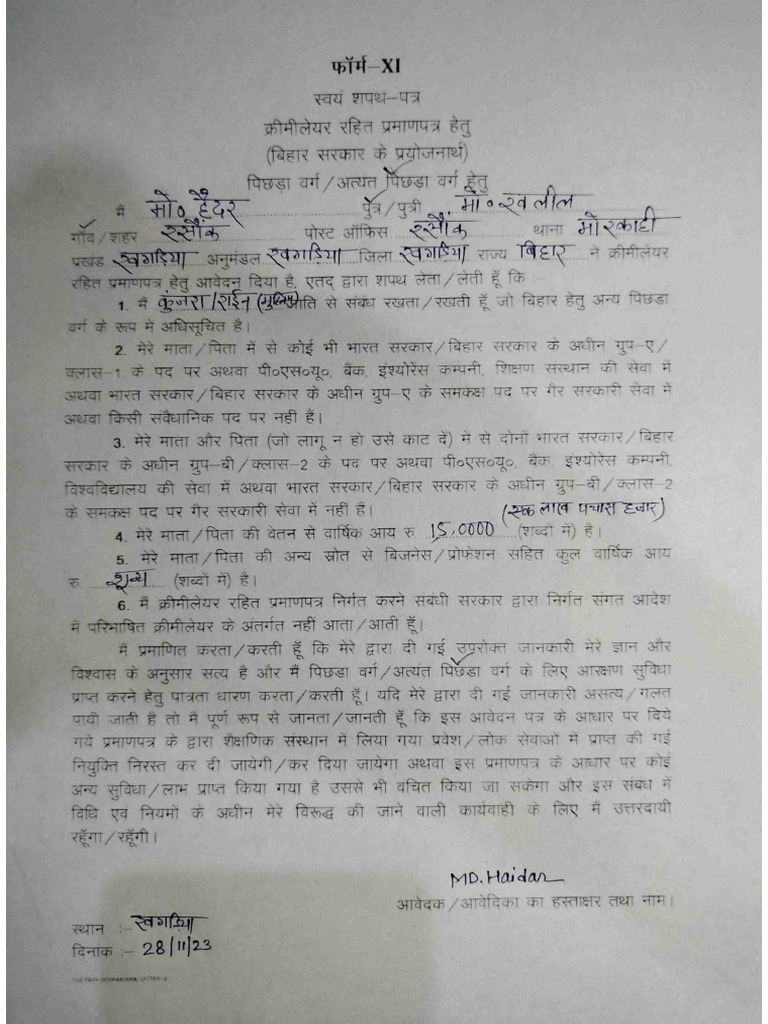 फॉर्म-XI
स्वयं शपथ-पत्र
क्रीमीलेयर रहित प्रमाणपत्र हेतु
(बिहार सरकार के प्रयोजनार्थ)
पिछडा वर्ग/अत्यंत पिछडा वर्ग हेतु
मैं मो० हैदर पुत्र/पुत्री मो० खलील
गाँव/शहर रसौंक पोस्ट ऑफिस रसौंक थाना मोरकाही
प्रखंड खगड़िया अनुमंडल खगड़िया जिला खगड़िया राज्य बिहार ने क्रीमीलेयर
रहित प्रमाणपत्र हेतु आवेदन दिया है, एतद् द्वारा शपथ लेता/लेती हूँ कि :-
1. मैं कुंजरा/राईन (मुस्लिम) जाति से संबंध रखता/रखती हूँ जो बिहार हेतु अन्य पिछडा
वर्ग के रूप में अधिसूचित है।
2. मेरे माता/पिता में से कोई भी भारत सरकार/बिहार सरकार के अधीन ग्रुप-ए/
क्लास-1 के पद पर अथवा पी०एस०यू०, बैंक, इंश्योरेंस कम्पनी, शिक्षण संस्थान की सेवा में
अथवा भारत सरकार/बिहार सरकार के अधीन ग्रुप-ए के समकक्ष पद पर गैर सरकारी सेवा में
अथवा किसी संवैधानिक पद पर नहीं हैं।
3. मेरे माता और पिता (जो लागू न हो उसे काट दें) में से दोनों भारत सरकार/बिहार
सरकार के अधीन ग्रुप-बी/क्लास-2 के पद पर अथवा पी०एस०यू०, बैंक, इंश्योरेंस कम्पनी,
विश्वविद्यालय की सेवा में अथवा भारत सरकार/बिहार सरकार के अधीन ग्रुप-बी/क्लास-2
के समकक्ष पद पर गैर सरकारी सेवा में नहीं हैं।
(एक लाख पचास हजार)
4. मेरे माता/पिता की वेतन से वार्षिक आय रु 15,0000 (शब्दों में) है।
5. मेरे माता/पिता की अन्य स्रोत से बिजनेस/प्रोफेशन सहित कुल वार्षिक आय
रु शून्य (शब्दों में) है।
6. मैं क्रीमीलेयर रहित प्रमाणपत्र निर्गत करने संबंधी सरकार द्वारा निर्गत संगत आदेश
में परिभाषित क्रीमीलेयर के अंतर्गत नहीं आता/आती हूँ।
मैं प्रमाणित करता/करती हूँ कि मेरे द्वारा दी गई उपरोक्त जानकारी मेरे ज्ञान और
विश्वास के अनुसार सत्य है और मैं पिछडा वर्ग/अत्यंत पिछडा वर्ग के लिए आरक्षण सुविधा
प्राप्त करने हेतु पात्रता धारण करता/करती हूँ। यदि मेरे द्वारा दी गई जानकारी असत्य/गलत
पायी जाती है तो मैं पूर्ण रूप से जानता/जानती हूँ कि इस आवेदन पत्र के आधार पर दिये
गये प्रमाणपत्र के द्वारा शैक्षणिक संस्थान में लिया गया प्रवेश/लोक सेवाओं में प्राप्त की गई
नियुक्ति निरस्त कर दी जायेगी/कर दिया जायेगा अथवा इस प्रमाणपत्र के आधार पर कोई
अन्य सुविधा/लाभ प्राप्त किया गया है उससे भी वंचित किया जा सकेगा और इस संबंध में
विधि एवं नियमों के अधीन मेरे विरूद्ध की जाने वाली कार्यवाही के लिए मैं उत्तरदायी
रहूँगा/रहूँगी।
MD. Haidar
आवेदक/आवेदिका का हस्ताक्षर तथा नाम।
स्थान :- खगड़िया
दिनांक :- 28/11/23